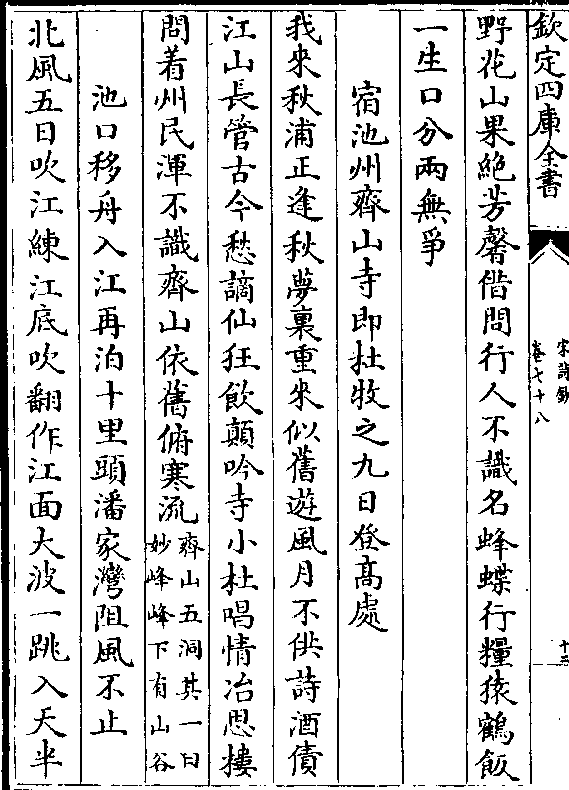 欽定四庫全書
宋詩鈔
卷七十八
十三
野花山果絶芳馨借問行人不識名蜂蝶行糧猿鶴飯
一生口分兩無爭
宿池州齊山寺即杜牧之九日登髙處
我來秋浦正逢秋夢裏重來似舊遊風月不供詩酒債
江山長管古今愁謫仙狂飲顛吟寺小杜唱情冶思樓
問着州民渾不識齊山依舊俯寒流齊山五洞其一曰
妙峰峰下有山谷
池口移舟入江再泊十里頭潘家灣阻風不止
北風五日吹江練江底吹翻作江面大波一跳入天半